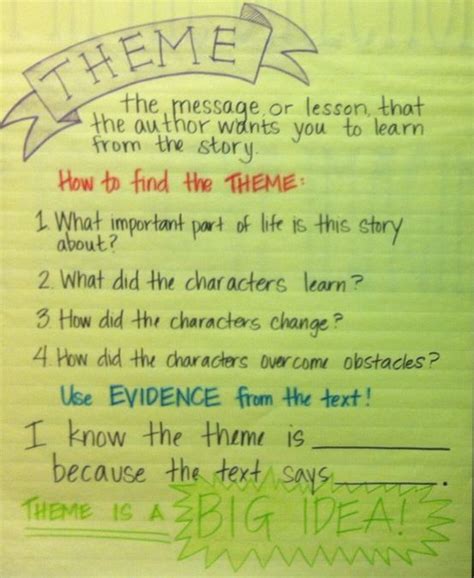 THEME
the message, or lesson, that
the author wants you to learn
from the story.
How to find the THEME:
1. What important part of life is this story
about?
2. What did the characters learn?
3. How did the characters change?
4. How did the characters overcome obstacles?
Use EVIDENCE from the text!
I know the theme is ________
because the text says ______.
THEME IS A BIG IDEA!